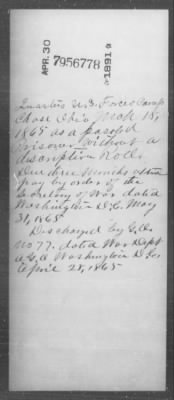 APR. 30
7956778
1891
Quarters U.S. Forces Camp
Chase Ohio Mch 18,
1865 as a paroled
prisoner without a
descriptive Roll.
Due three months extra
pay by order of the
Secretary of War dated
Washington D.C. May
31, 1865
Discharged by G.O.
No 77. dated War Dept
A.G.O Washington D.C.
April 28, 1865